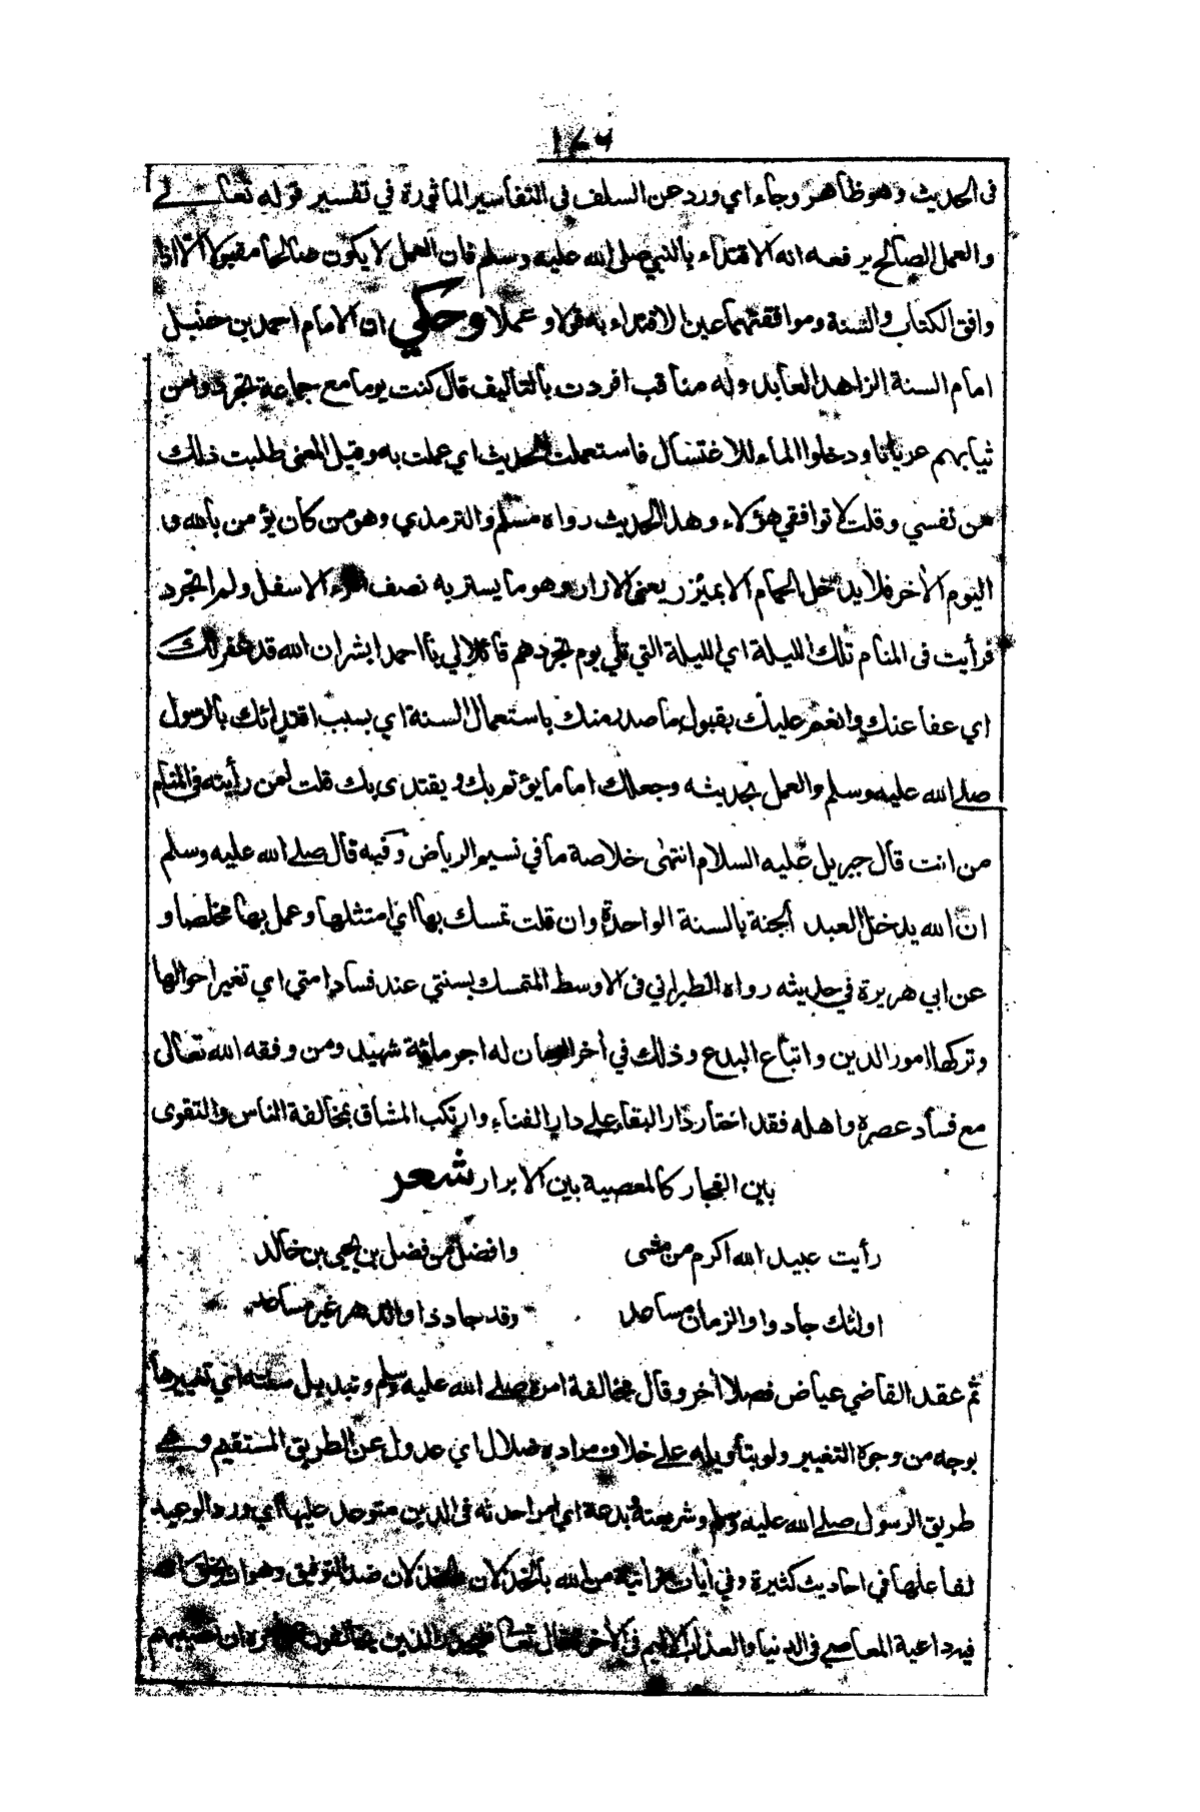 ١٤٦
فى الحديث وهو ظاهر وجاء اي ورد عن السلف فى التفاسير الماثورة في تفسير قوله تعالى
والعمل الصالح يرفعه انه الاقتداء بالنبي صلى الله عليه وسلم فان العمل لا يكون صالحا مقبولا الا اذا
وافق الكتاب والسنة وموافقتهما عين الاقتداء به قولا وعملا وحكي ان الامام احمد بن حنبل
امام السنة الزاهد العابد وله مناقب افردت بالتأليف قال كنت يوما مع جماعة تجردوا من
ثيابهم عريانا ودخلوا الماء للاغتسال فاستعملت الحديث اي عملت به وقيل المعنى طلبت ذلك
من نفسي وقلت لا توافقي هؤلاء وهذا الحديث رواه مسلم والترمذي وهو من كان يؤمن بالله و
اليوم الأخر فلا يدخل الحمام الا بمئزر يعنى الازار وهو ما يستر به نصف المرء الاسفل ولم اتجرد
فرأيت فى المنام تلك الليلة اي الليلة التي تلي يوم تجردهم قائلا لي يا احمد ابشر ان الله قد غفر لك
اي عفا عنك وانعم عليك بقبول ما صدر منك باستعمال السنة اي بسبب اقتدائك بالرسول
صلے الله عليه وسلم والعمل بحديثه وجعلك اماما يؤتم بك ويقتدى بك قلت لمن رأيته فى المنام
من انت قال جبريل عليه السلام انتهى خلاصة ما في نسيم الرياض وفيه قال صلے الله عليه وسلم
ان الله يدخل العبد الجنة بالسنة الواحدة وان قلت تمسك بها اي امتثلها وعمل بها مخلصا و
عن ابي هريرة في حديثه رواه الطبراني فى الاوسط المتمسك بسنتي عند فساد امتي اي تغير احوالها
وتركها امور الدين واتباع البدع وذلك في أخر الزمان له اجر مائة شهيد ومن وفقه الله تعالى
مع فساد عصره واهله فقد اختار دار البقاء على دار الفناء وارتكب المشاق بمخالفة الناس والتقوى
بين الفجار كالمعصية بين الابرار شعر
رأيت عبيد الله اكرم من مشى وافضل من فضل بن يحيى بن خالد
اولئك جادوا والزمان مساعد وقد جاد ذا والدهر غير مساعد
ثم عقد القاضي عياض فصلا أخر وقال مخالفة امره صلے الله عليه وسلم وتبديل سنته اي تغييرها
بوجه من وجوه التغيير ولو بتأويله على خلاف مراده ضلال اي عدول عن الطريق المستقيم وهے
طريق الرسول صلے الله عليه وسلم وشريعته وبدعة اي امر احدثه فى الدين متوعد عليها اي ورد الوعيد
لفاعلها في احاديث كثيرة وفي أيات قرأنية من الله بالخذلان الخذلان ضد التوفيق وهو ان يخلق الله
فيه داعية المعاصي فى الدنيا والعذاب الاليم فى الأخرة قال تعالى فليحذر الذين يخالفون عن امره ان تصيبهم